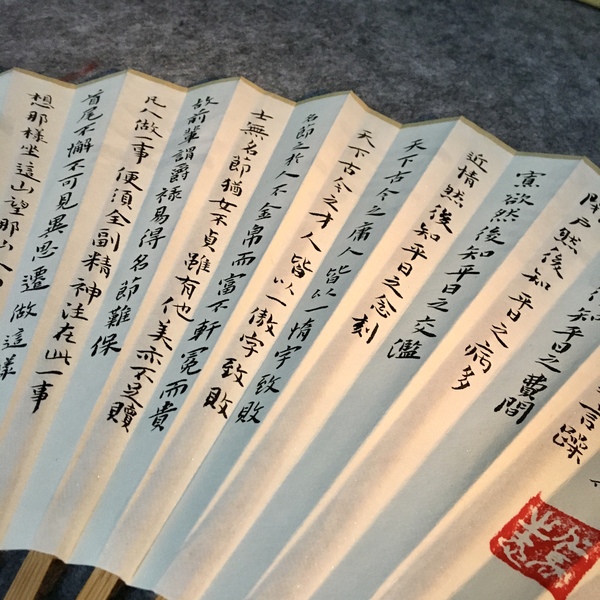 言躁
知平日之費閒
閉戶然後知平日之交濫
寡欲然後知平日之病多
近情然後知平日之念刻
天下古今之庸人皆以一惰字致敗
天下古今之才人皆以一傲字致敗
名節之於人不金帛而富不軒冕而貴
士無名節猶女不貞雖有他美亦不足贖
故前輩謂爵祿易得名節難保
凡人做一事便須全副精神注在此一事
首尾不懈不可見異思遷做這樣
想那樣坐這山望那山人